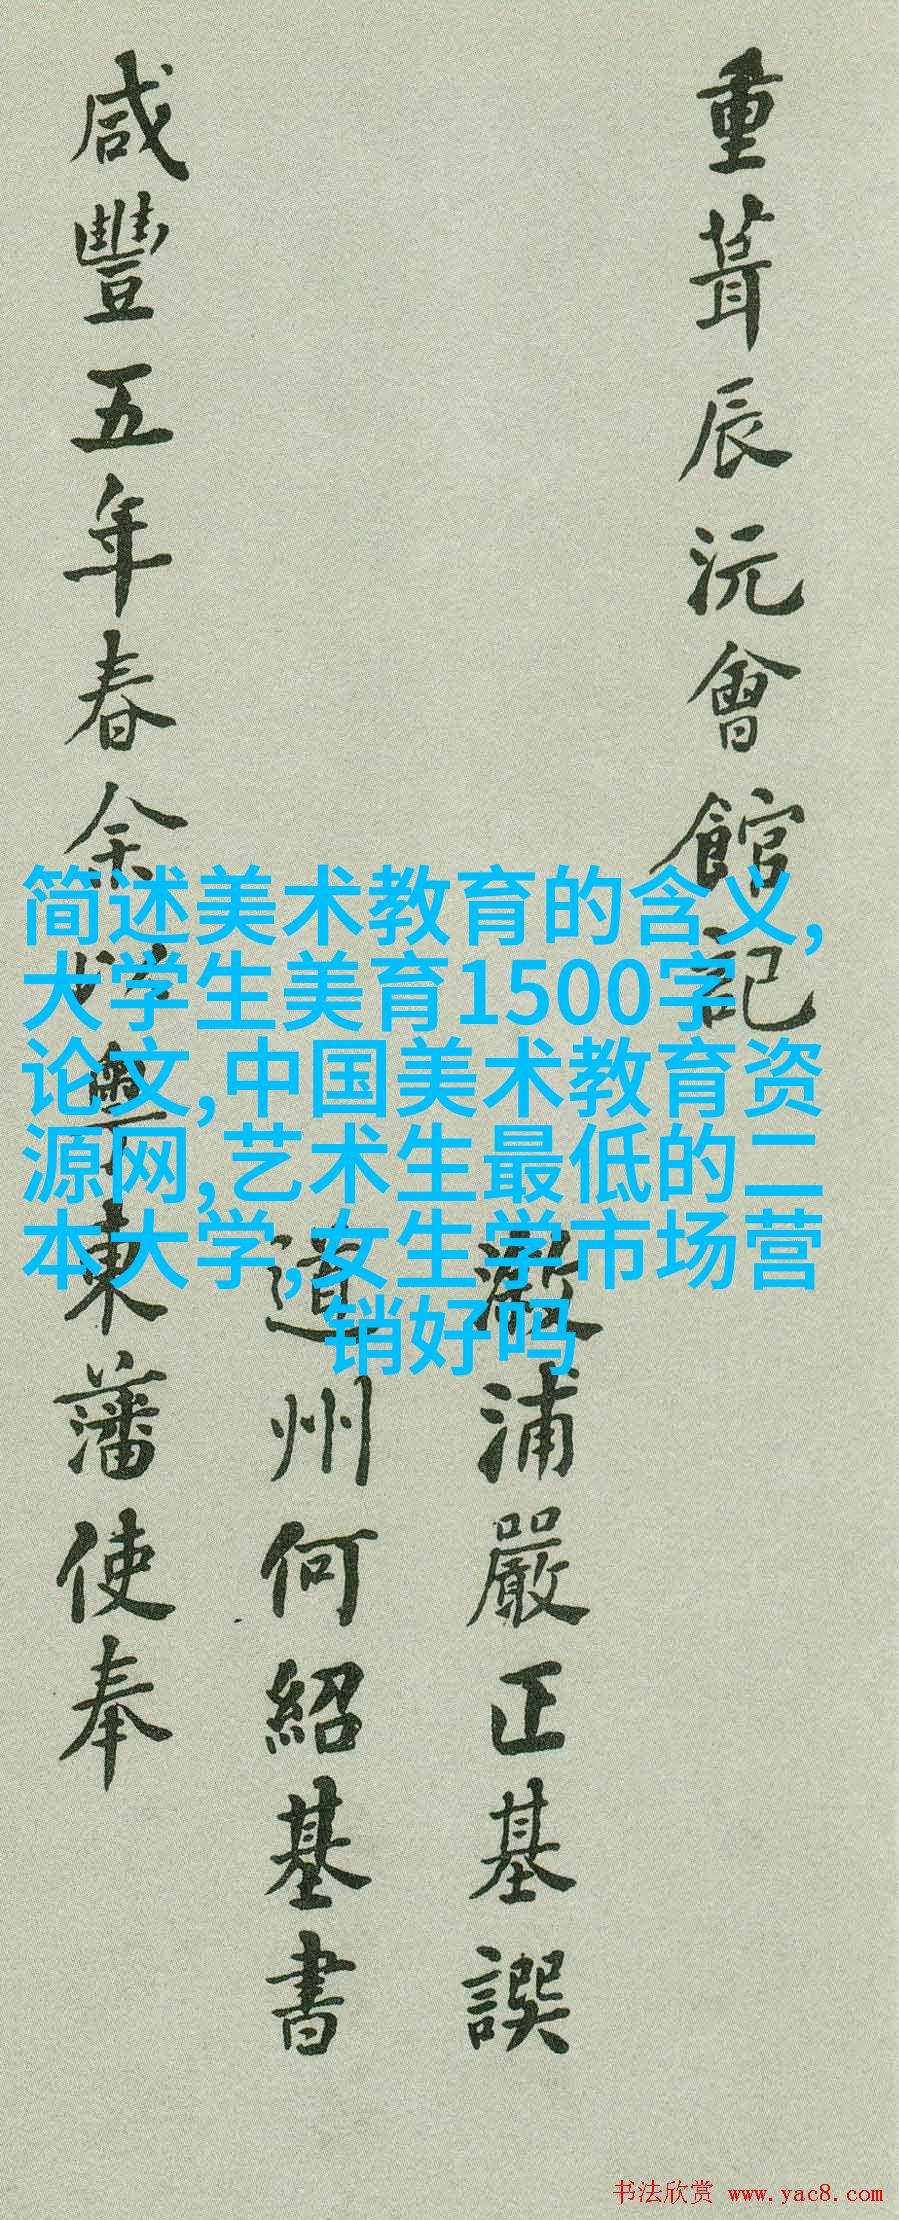 重葺辰沅會館記
漵浦嚴正基譔
道州何紹基書
咸豐五年春余以粵東藩使奉
简述美术教育的含义,
大学生美育1500字
论文,中国美术教育资
源网,艺术生最低的二
本大学,女生学市场营
销好吗
书法欣赏 www.yac8.com